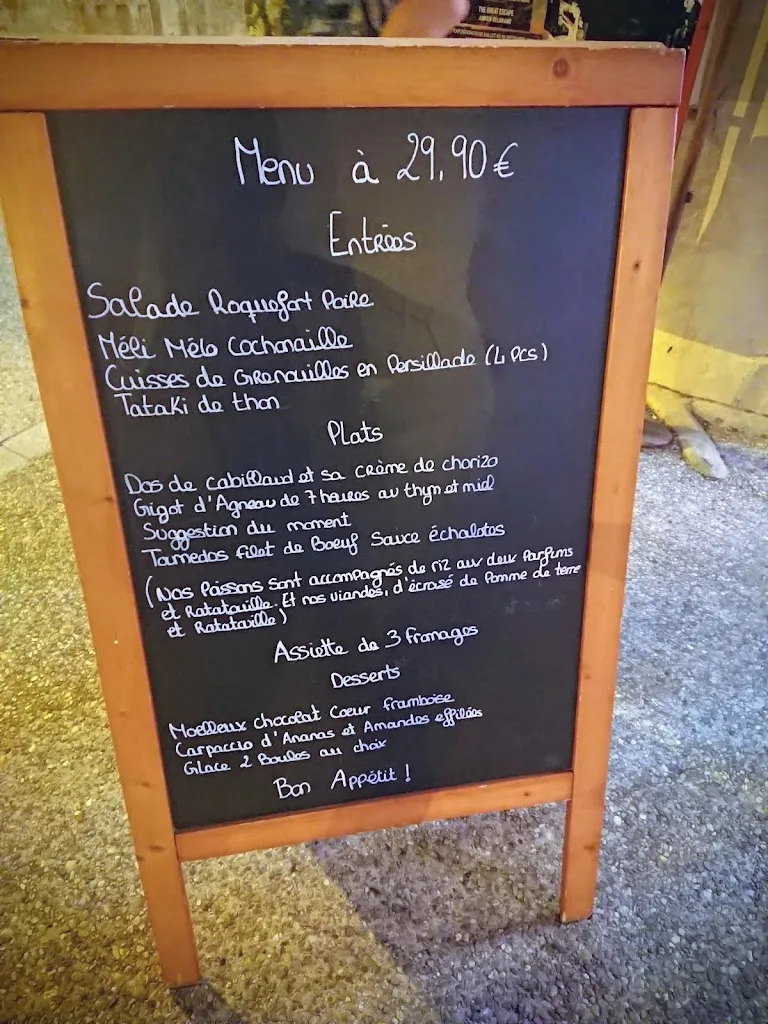 THE GREAT ESCAPE
Menu à 29,90€
Entrées
Salade Roquefort Poire
Méli Mélo Cochonaille
Cuisses de Grenouilles en Persillade (4 pcs)
Tataki de thon
Plats
Dos de cabillaud et sa crème de chorizo
Gigot d'Agneau de 7 heures au thym et miel
Suggestion du moment
Tournedos filet de Boeuf Sauce échalotes
(Nos Poissons sont accompagnés de riz aux deux Parfums
et Ratatouille. Et nos viandes, d'écrasé de Pomme de terre
et Ratatouille)
Assiette de 3 fromages
Desserts
Moelleux chocolat Coeur framboise
Carpaccio d'Ananas et Amandes effilées
Glace 2 Boules au choix
Bon Appétit !